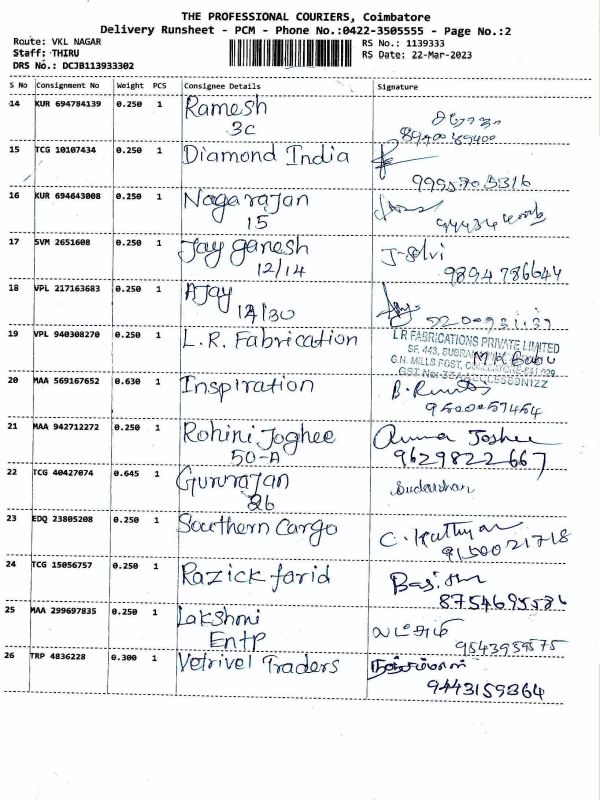 THE PROFESSIONAL COURIERS, Coimbatore
Delivery Runsheet - PCM - Phone No.:0422-3505555 - Page No.:2
Route: VKL NAGAR
RS No.: 1139333
Staff: THIRU
RS Date: 22-Mar-2023
DRS No.: DCJB113933302
S No Consignment No Weight PCS Consignee Details Signature
14 KUR 694784139 0.250 1 Ramesh
3C
15 TCG 10107434 0.250 1 Diamond India
16 KUR 694643008 0.250 1 Nagarajan
15
17 SVM 2651608 0.250 1 Jay ganesh J-Selvi
12/14 9894786644
18 VPL 217163683 0.250 1 AJay
1A/30
19 VPL 940308270 0.250 1 L.R. Fabrication L R FABRICATIONS PRIVATE LIMITED
SF. 443,
M K Babu
G.N. MILLS POST,
20 MAA 569167652 0.630 1 Inspiration
9500057454
21 MAA 942712272 0.250 1 Rohini Joghee Joghee
50-A 9629822667
22 TCG 40427074 0.645 1 Gururajan Sudarshan
26
23 EDQ 23805208 0.250 1 Southern Cargo
9150021718
24 TCG 15056757 0.250 1 Razick farid
25 MAA 299697835 0.250 1 Lakshmi லட்சுமி
Entp 9543959575
26 TRP 4836228 0.300 1 Vetrivel Traders
9443159364